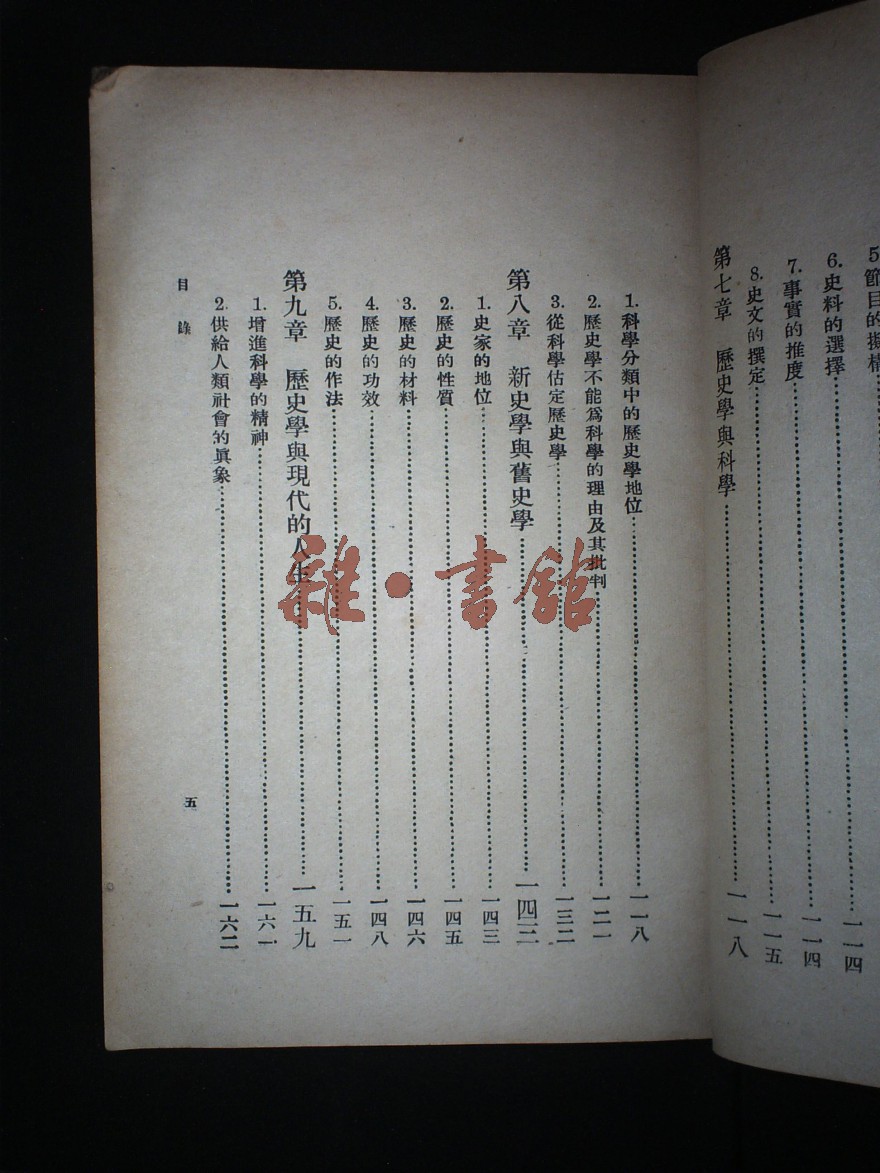 6. 史料的選擇……一一四
7. 事實的推度……一一四
8. 史文的撰定……一一五
第七章 歷史學與科學……一一八
1. 科學分類中的歷史學地位……一一八
2. 歷史學不能爲科學的理由及其批判……一二一
3. 從科學估定歷史學……一三二
第八章 新史學與舊史學……一四三
1. 史家的地位……一四三
2. 歷史的性質……一四五
3. 歷史的材料……一四六
4. 歷史的功效……一四八
5. 歷史的作法……一五一
第九章 歷史學與現代的人生……一五九
1. 增進科學的精神……一六一
2. 供給人類社會的眞象……一六二
目錄
五
雜·書館